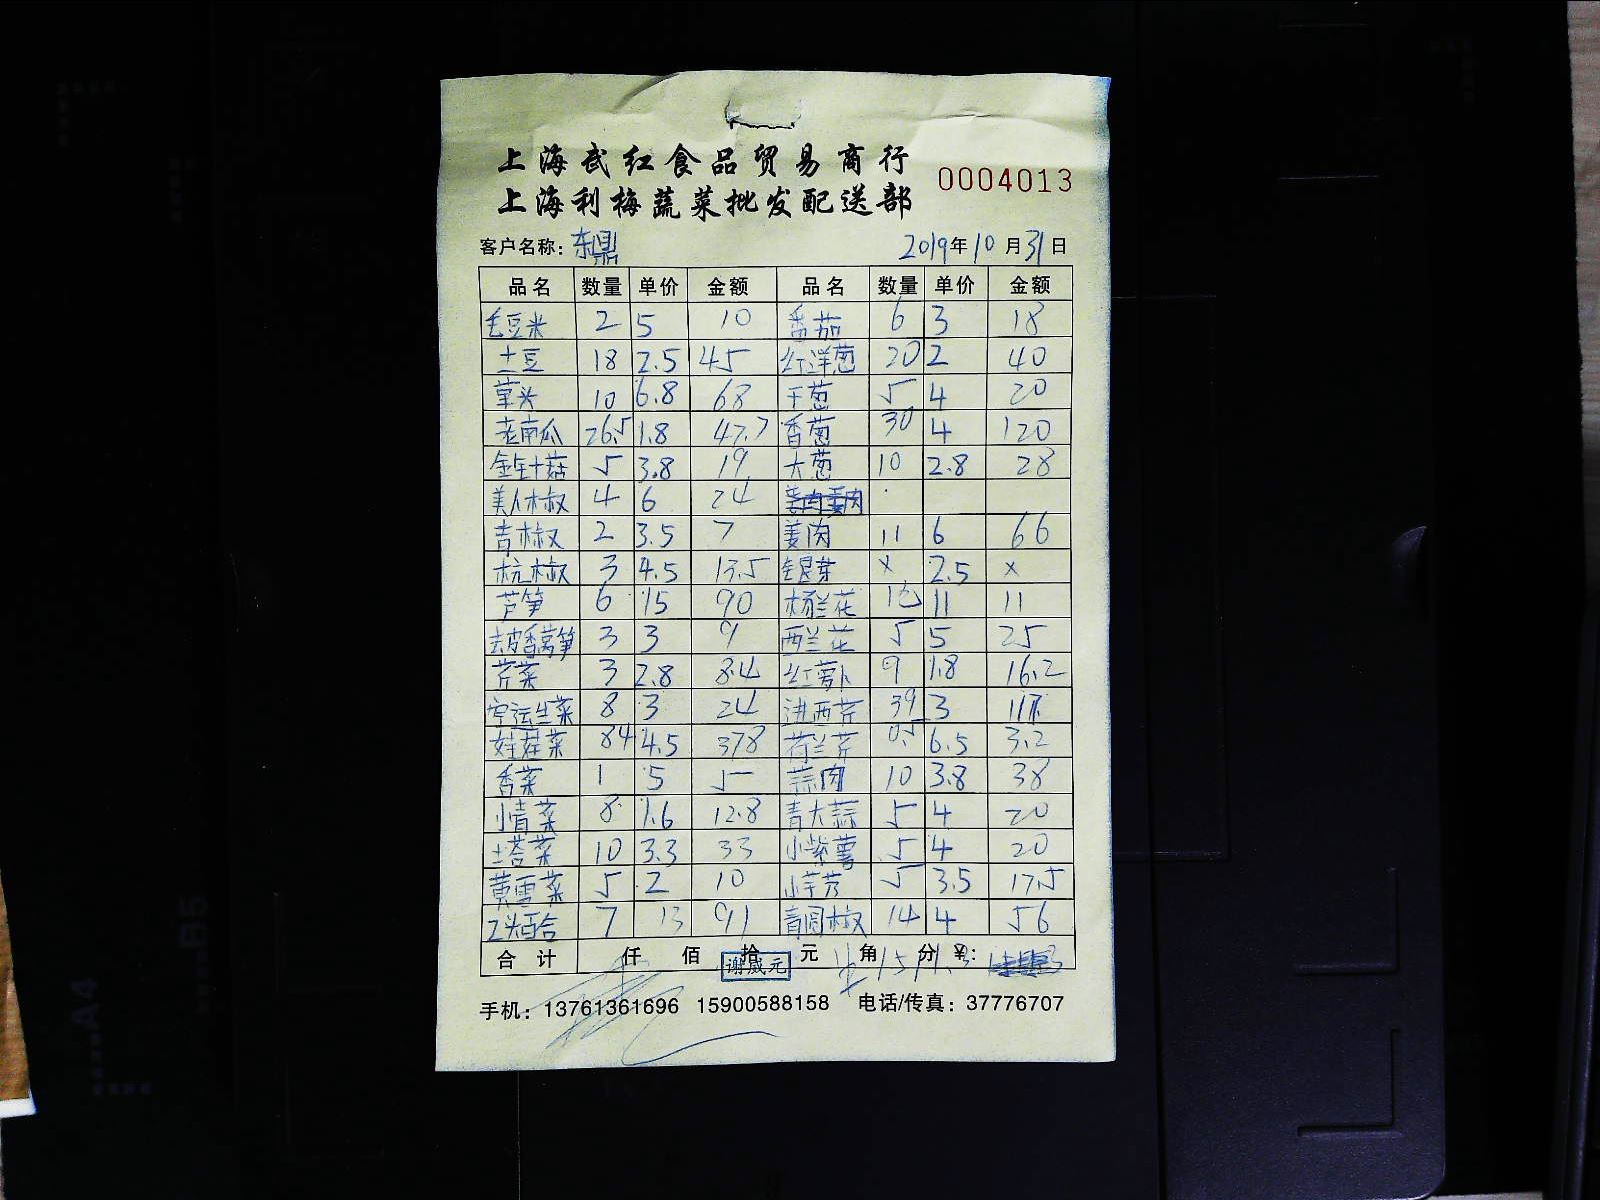 上海武红食品贸易商行
上海利梅蔬菜批发配送部
0004013
客户名称：东鼎 2019年10月31日
品名 数量 单价 金额 品名 数量 单价 金额
毛豆米 2 5 10 番茄 6 3 18
土豆 18 2.5 45 红洋葱 20 2 40
草头 10 6.8 68 干葱 5 4 20
老南瓜 26.5 1.8 47.7 香葱 30 4 120
金针菇 5 3.8 19 大葱 10 2.8 28
美人椒 4 6 24
青椒 2 3.5 7 姜肉 11 6 66
杭椒 3 4.5 13.5 银芽 × 2.5 ×
芦笋 6 15 90 杨兰花 11 11
去皮香莴笋 3 3 9 西兰花 5 5 25
芹菜 3 2.8 8.4 红萝卜 9 1.8 16.2
空运生菜 8 3 24 进西芹 39 3 117
娃娃菜 84 4.5 378 荷兰芹 0.5 6.5 3.2
香菜 1 5 5 蒜肉 10 3.8 38
小青菜 8 1.6 12.8 青大蒜 5 4 20
塔菜 10 3.3 33 小紫薯 5 4 20
黄雪菜 5 2 10 小芋艿 5 3.5 17.5
2头百合 7 13 91 青圆椒 14 4 56
合计 仟 佰 拾 元 角 分 ¥: 1511.3
谢威元
手机：13761361696 15900588158 电话/传真：37776707